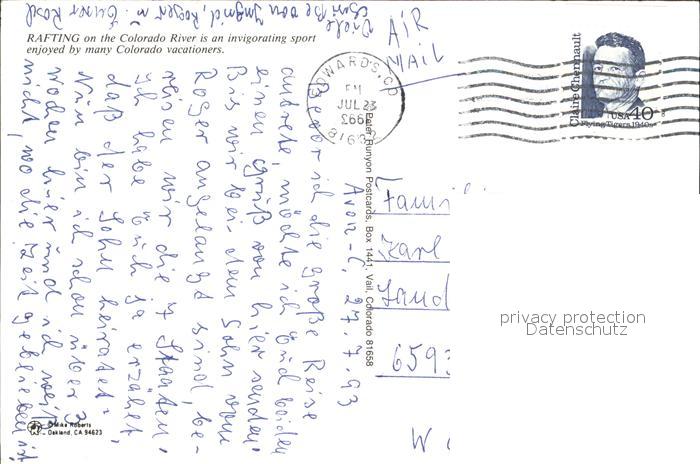 RAFTING on the Colorado River is an invigorating sport
enjoyed by many Colorado vacationers.
AIR
MAIL
EDWARDS, CO
PM
JUL 23
81632
Claire Chennault
USA 40
Flying Tigers, 1940s
Peter Runyon Postcards, Box 1441, Vail, Colorado 81658
© Mike Roberts
Oakland, CA 94623
Avon-C, 27.7.93
Bevor ich die große Reise
antrete, möchte ich Euch beiden
einen Gruß von hier senden.
Bis wir bei dem Sohn von
Roger angelangt sind, be-
reisen wir die 7 Staaten.
Ich habe Euch ja erzählt,
daß der Sohn heiratet.
Nun bin ich schon über 3
Wochen hier und ich weiß
nicht, wo die Zeit geblieben ist.
Viele
Grüße von Ingrid, Roger u. Eurer Rosel
Fami
Karl
Land
659
W
privacy protection
Datenschutz